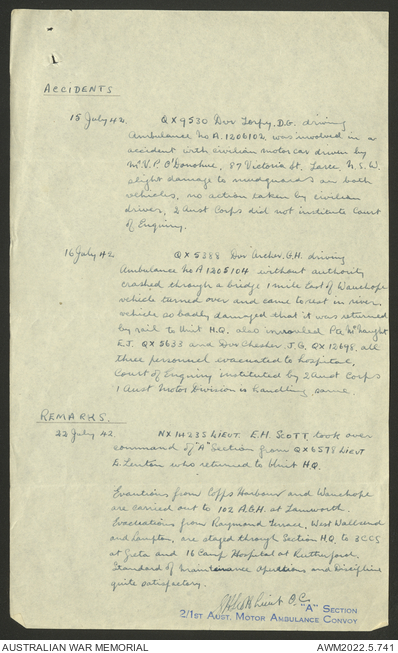 ACCIDENTS
15 July 42. QX9530 Dvr Torpy, D.G. driving
Ambulance No A.1206102 was involved in a
accident with civilian motor car driven by
Mr V.P. O'Donohue, 87 Victoria St. Taree N.S.W.
slight damage to mudguards on both
vehicles, no action taken by civilian
driver, 2 Aust Corps did not institute Court
of Enquiry.
16 July 42 QX5388 Dvr Archer, G.H. driving
Ambulance No A 1205104 without authority
crashed through a bridge 1 mile East of Wauchope
vehicle turned over and came to rest in river
vehicle so badly damaged that it was returned
by rail to Unit H.Q. also involved Pte McNaught
E.J. QX5633 and Dvr Chester J.G. QX12698, all
three personnel evacuated to hospital,
Court of Enquiry instituted by 2 Aust Corps
1 Aust Motor Division is handling same.
REMARKS.
22 July 42 NX14235 LIEUT. E.H. SCOTT took over
command of "A" Section from QX6578 LIEUT
E. who returned to Unit H.Q.
Evacuations from Coffs Harbour and Wauchope
are carried out to 102 A.G.H. at Tamworth.
Evacuations from Raymond Terrace, West Wallsend
and Lambton, are staged through Section H.Q. to 3CCS
at Greta and 16 Camp Hospital at Rutherford.
Standard of Maintenance Operations and Discipline
quite satisfactory.
Lieut O.C.
"A" SECTION
2/1ST AUST. MOTOR AMBULANCE CONVOY
AUSTRALIAN WAR MEMORIAL AWM2022.5.741